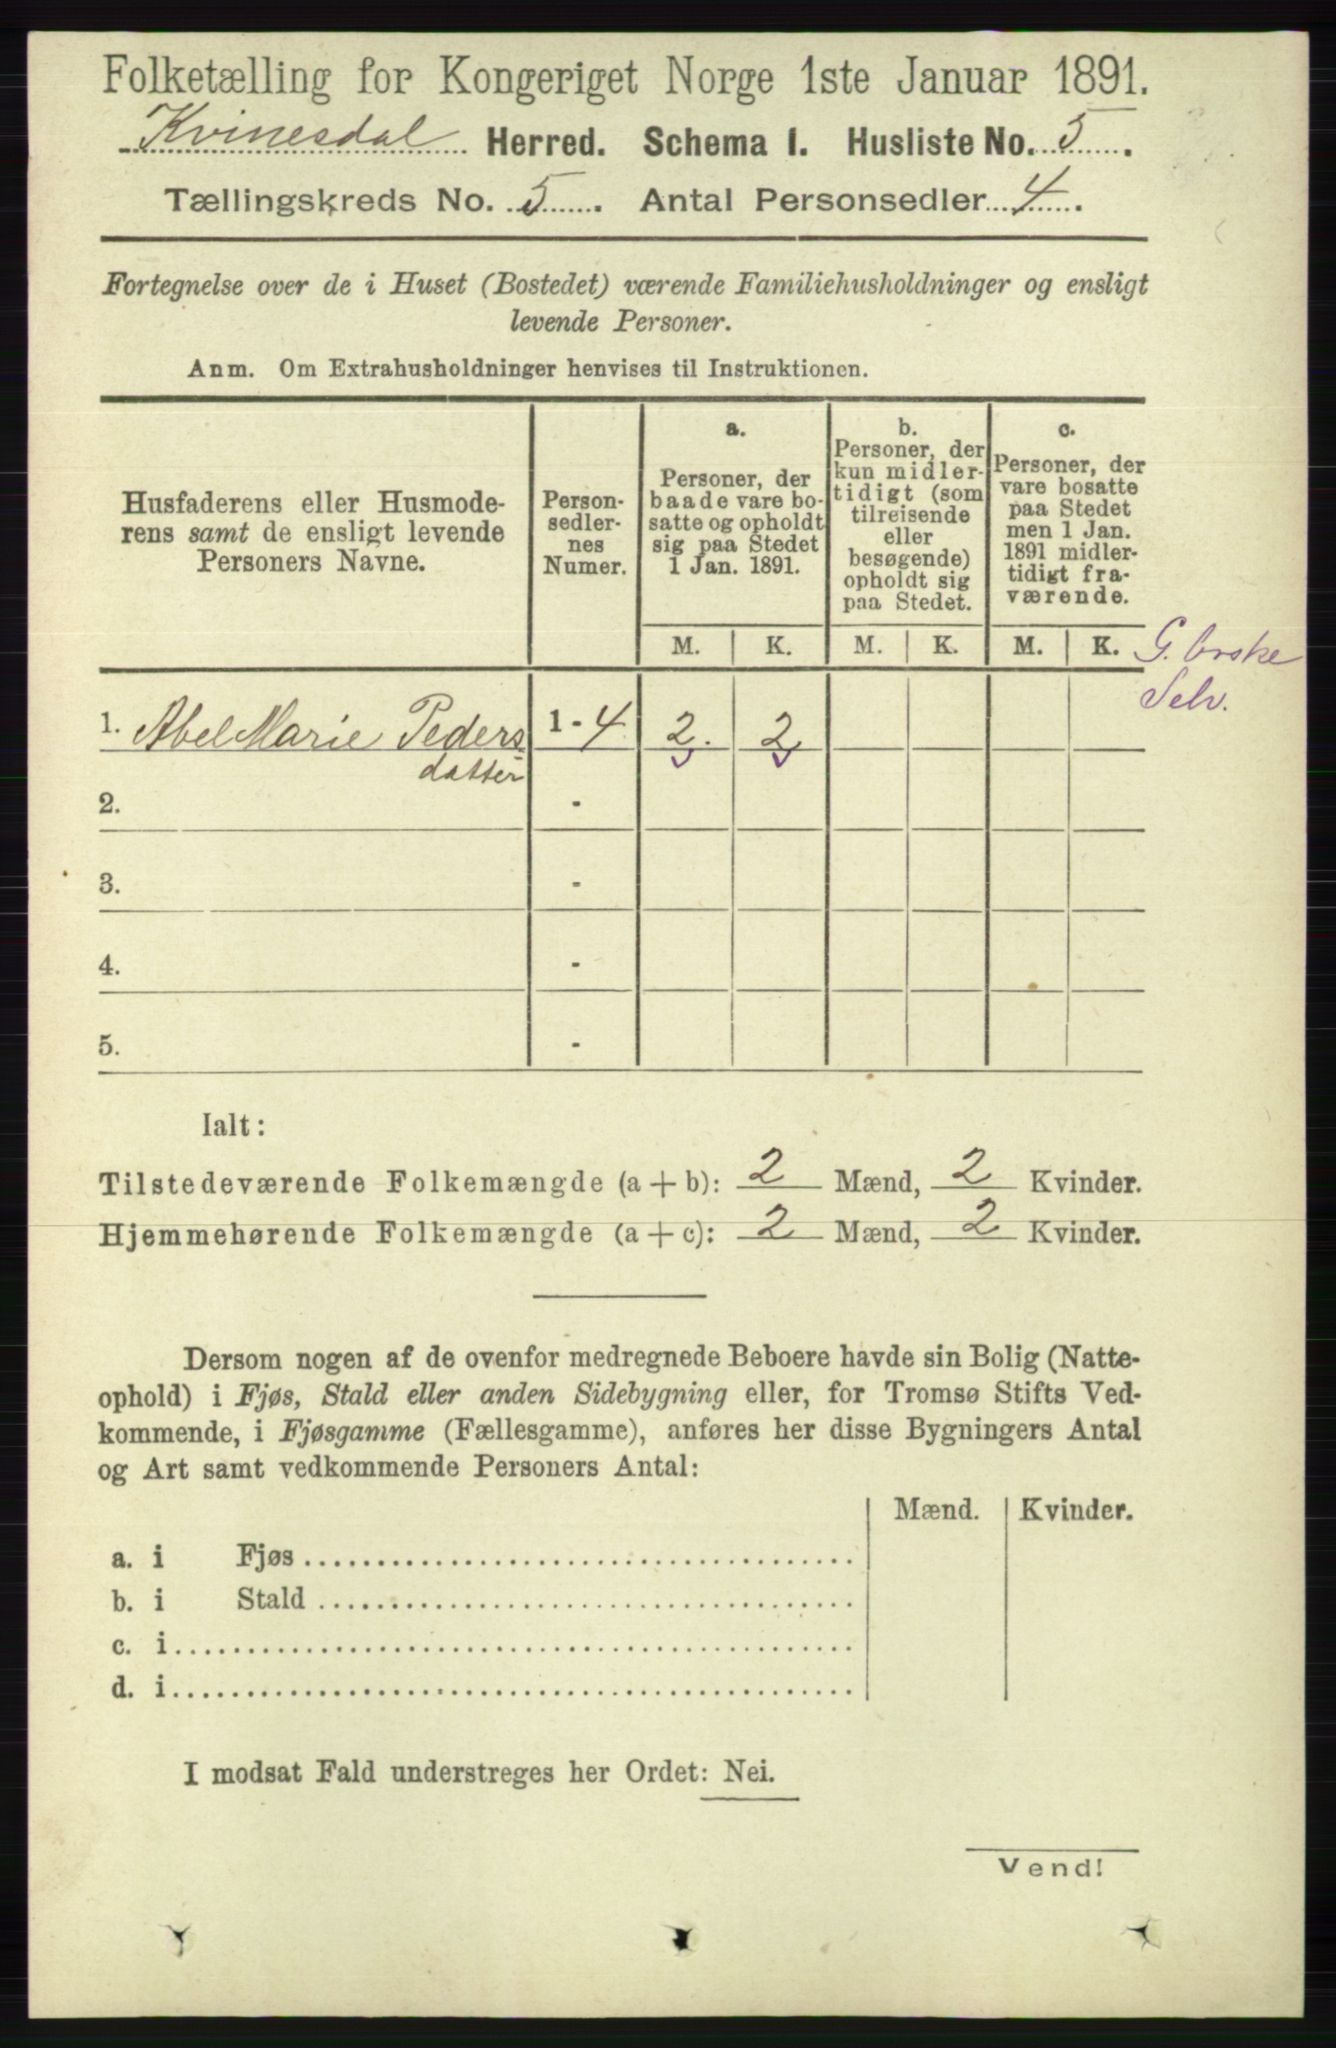 Folketælling for Kongeriget Norge 1ste Januar 1891.
Kvinesdal Herred. Schema 1. Husliste No. 5.
Tællingskreds No. 5. Antal Personsedler 4.
Fortegnelse over de i Huset (Bostedet) værende Familiehusholdninger og ensligt
levende Personer.
Anm. Om Extrahusholdninger henvises til Instruktionen.
Husfaderens eller Husmode-
rens samt de ensligt levende
Personers Navne.
Person-
sedler-
nes
Numer.
a.
Personer, der
baade vare bo-
satte og opholdt
sig paa Stedet
1 Jan. 1891.
b.
Personer, der
kun midler-
tidigt (som
tilreisende
eller
besøgende)
opholdt sig
paa Stedet.
c.
Personer, der
vare bosatte
paa Stedet
men 1 Jan.
1891 midler-
tidigt fra-
værende.
M. K. M. K. M. K.
Selv.
1. Abel Marie Peders 1-4 2. 2
datter
2. -
3. -
4. -
5. -
Ialt:
Tilstedeværende Folkemængde (a+b): 2 Mænd, 2 Kvinder.
Hjemmehørende Folkemængde (a+c): 2 Mænd, 2 Kvinder.
Dersom nogen af de ovenfor medregnede Beboere havde sin Bolig (Natte-
ophold) i Fjøs, Stald eller anden Sidebygning eller, for Tromsø Stifts Ved-
kommende, i Fjøsgamme (Fællesgamme), anføres her disse Bygningers Antal
og Art samt vedkommende Personers Antal:
Mænd. Kvinder.
a. i Fjøs
b. i Stald
c. i
d. i
I modsat Fald understreges her Ordet: Nei.
Vend!